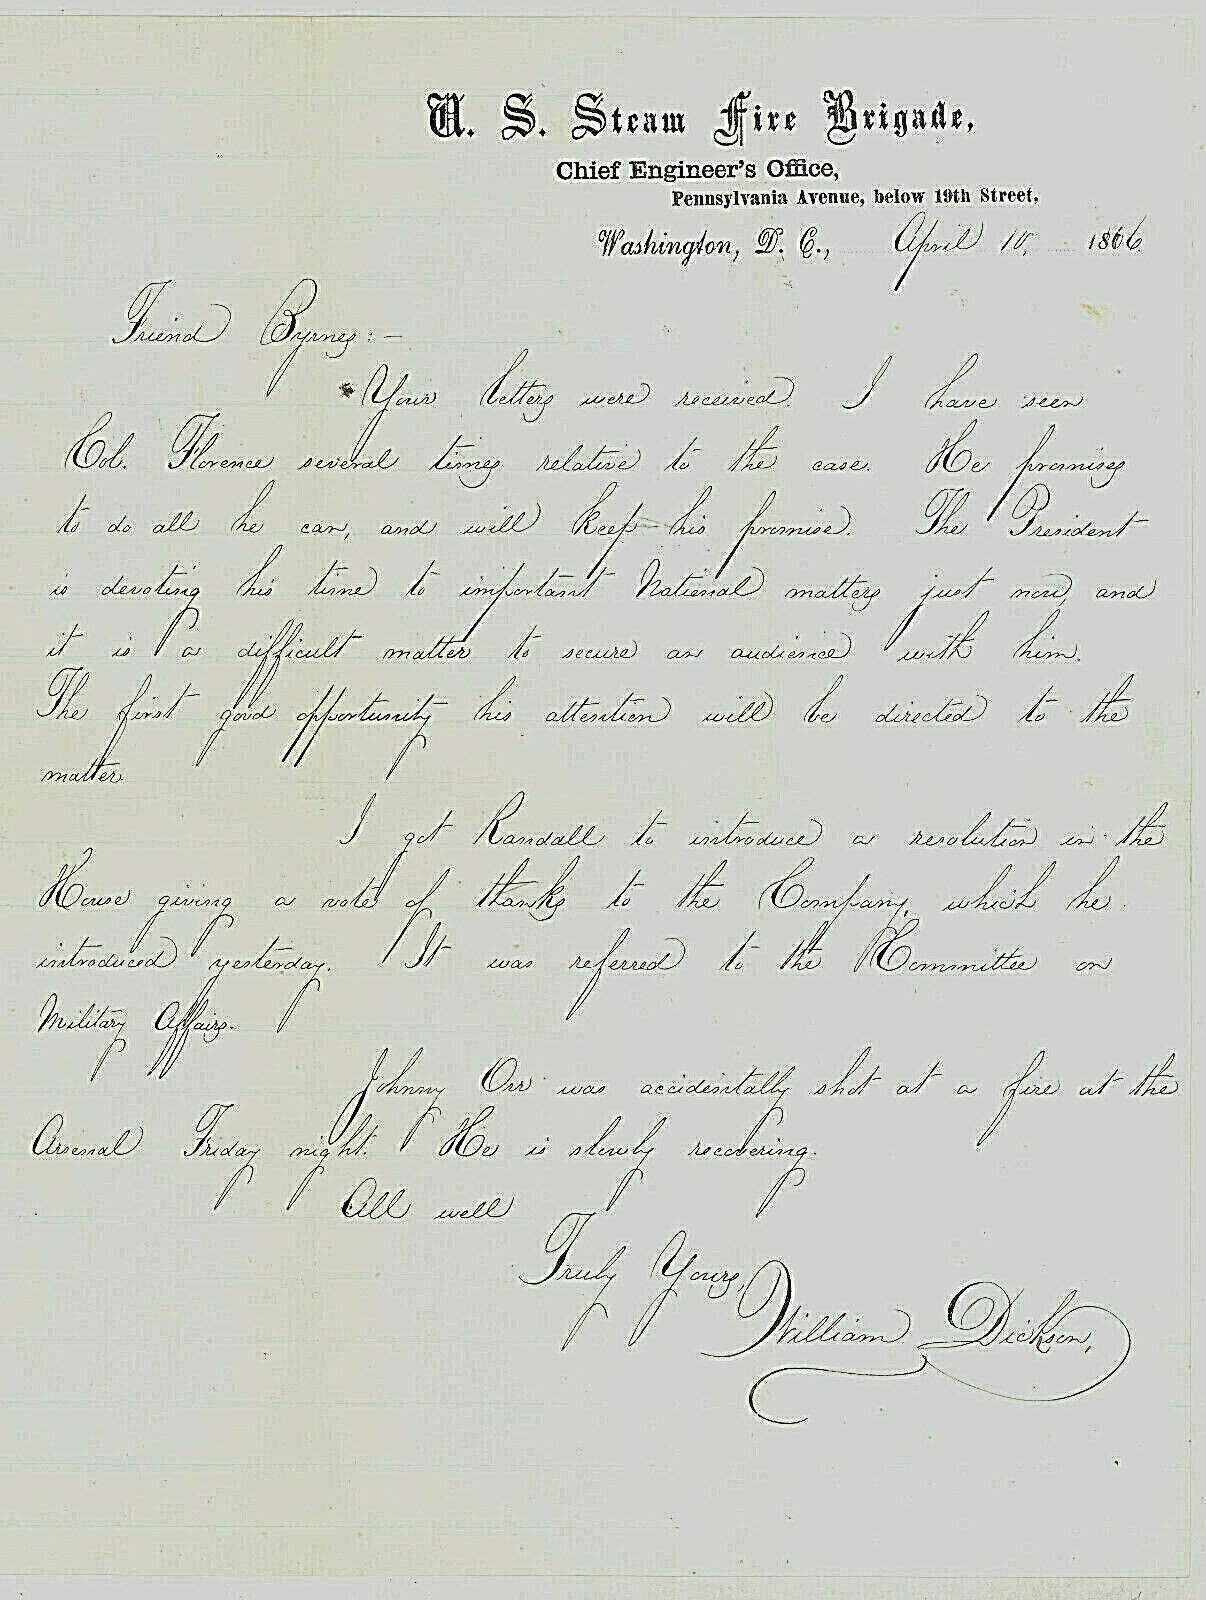 U. S. Steam Fire Brigade,
Chief Engineer's Office,
Pennsylvania Avenue, below 19th Street,
Washington, D. C., April 10, 1866.
Friend Byrnes:—
Your letters were received. I have seen
Col. Florence several times relative to the case. He promises
to do all he can, and will keep his promise. The President
is devoting his time to important National matters just now, and
it is a difficult matter to secure an audience with him.
The first good opportunity his attention will be directed to the
matter.
I got Randall to introduce a resolution in the
House giving a vote of thanks to the Company, which he
introduced yesterday. It was referred to the Committee on
Military Affairs.
Johnny Orr was accidentally shot at a fire at the
Arsenal Friday night. He is slowly recovering.
All well
Truly Yours,
William Dickson,